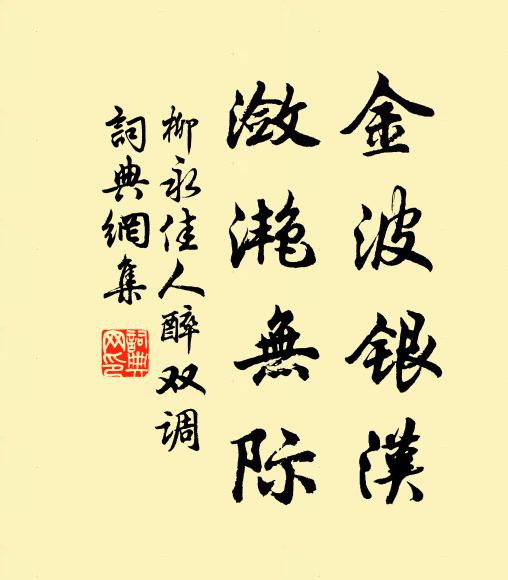 金波銀漢
潋滟無际
柳永佳人醉双调
詞典網集
詞典網印